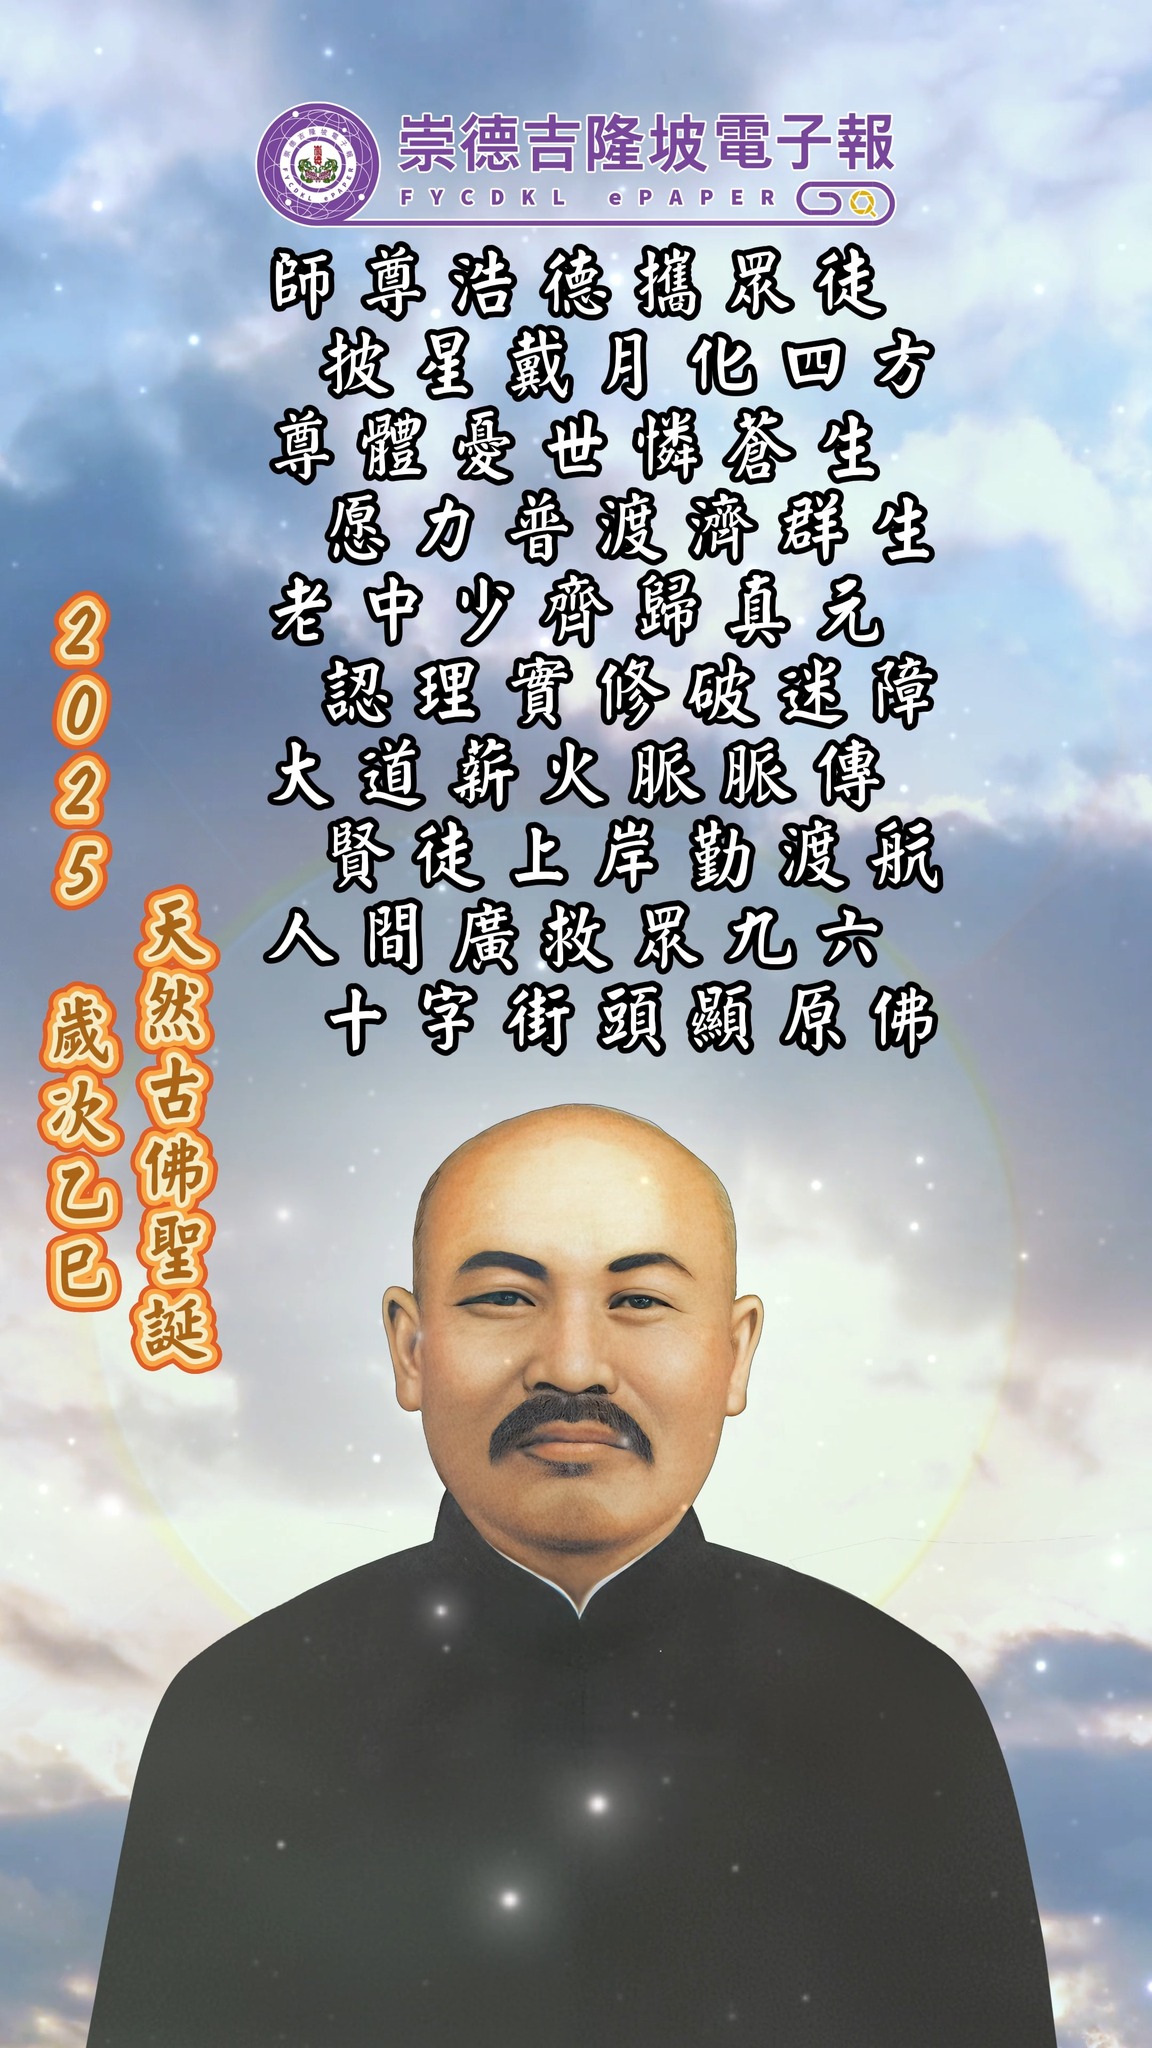 崇德吉隆坡電子報
FYCDKL ePAPER
師尊浩德攜眾徒
披星戴月化四方
尊體憂世憐蒼生
愿力普渡濟群生
老中少齊歸真元
認理實修破迷障
大道薪火脈脈傳
賢徒上岸勤渡航
人間廣救眾九六
十字街頭顯原佛
天然古佛聖誕
2025 歲次乙巳